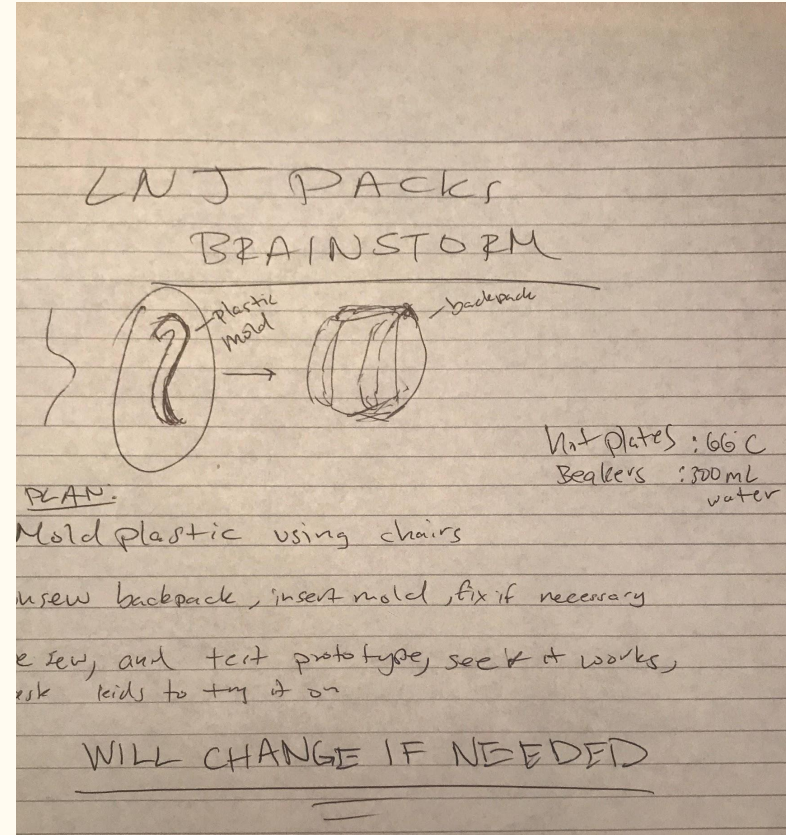 LNJ PACKS
BRAINSTORM
plastic
mold
backpack
Hot plates : 66°C
Beakers : 300 mL
water
PLAN:
Mold plastic using chairs
nsew backpack, insert mold, fix if necessary
e sew, and test prototype, see it works,
ask kids to try it on
WILL CHANGE IF NEEDED